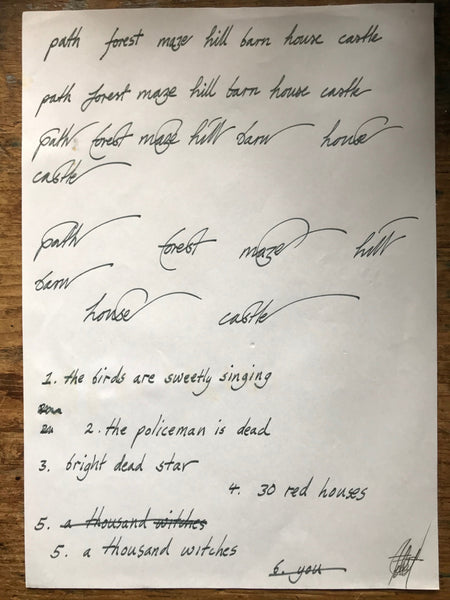 path forest maze hill barn house castle
path forest maze hill barn house castle
path forest maze hill barn house
castle
path forest maze hill
barn
house castle
1. the birds are sweetly singing
2. the policeman is dead
3. bright dead star
4. 30 red houses
5. a thousand witches
5. a thousand witches
6. you